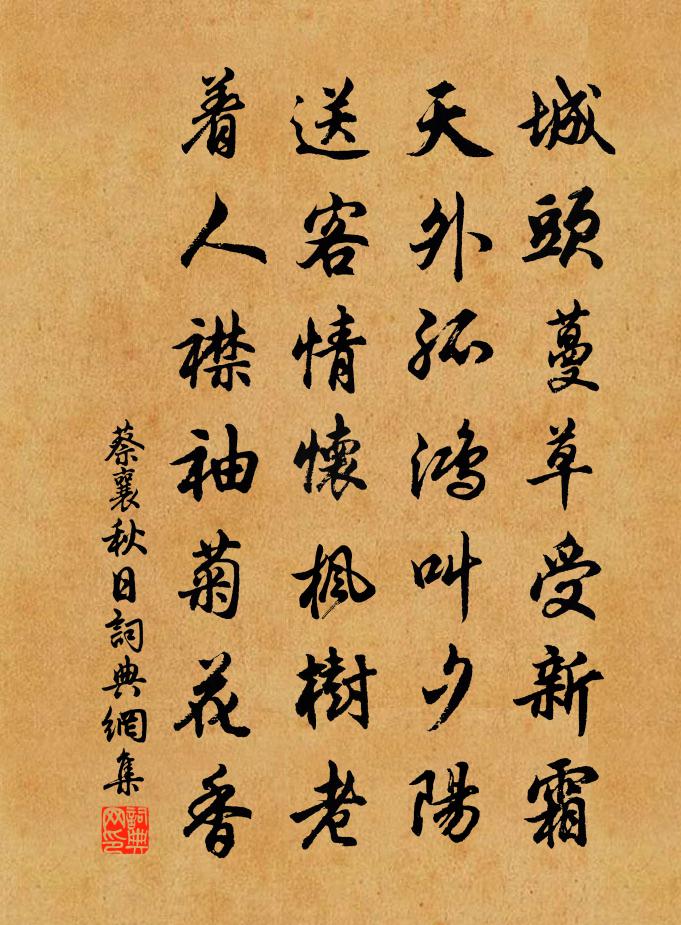 城頭蔓草受新霜
天外孤鴻叫夕陽
送客情懷楓樹老
着人襟袖菊花香
蔡襄秋日詞典網集
詞典网印